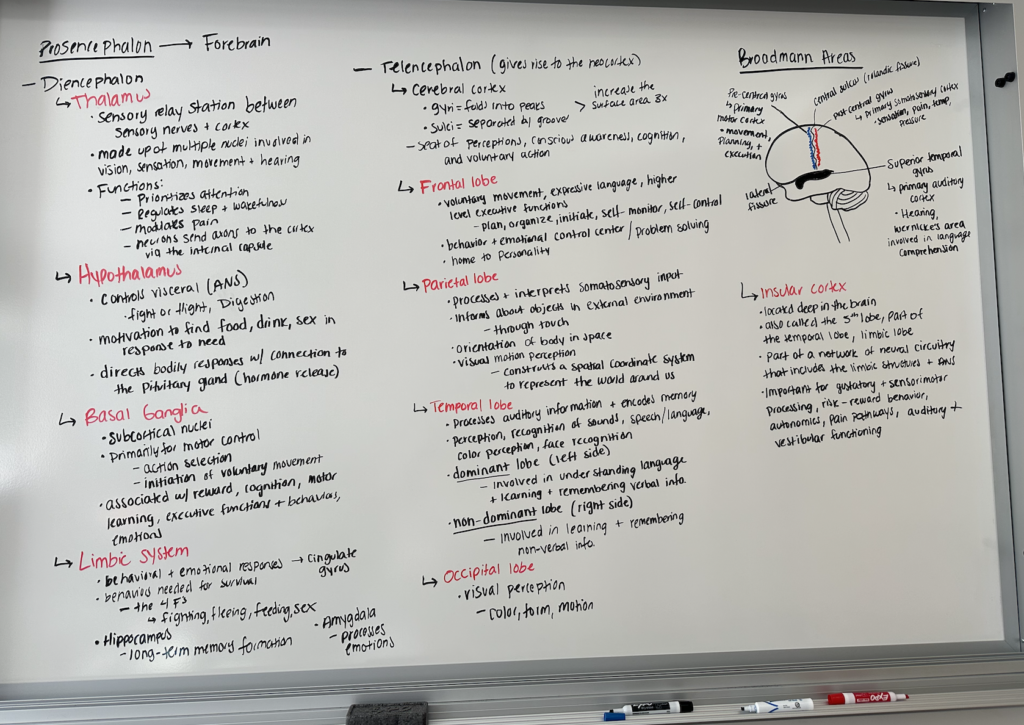 Prosencephalon → Forebrain
— Diencephalon
↳ Thalamus
• sensory relay station between
sensory nerves + cortex
• made up of multiple nuclei involved in
vision, sensation, movement + hearing
• Functions:
— Prioritizes attention
— Regulates sleep + wakefulness
— modulates pain
— neurons send axons to the cortex
via the internal capsule
↳ Hypothalamus
• controls visceral (ANS)
• fight or flight, Digestion
• motivation to find food, drink, sex in
response to need
• directs bodily responses w/ connection to
the pituitary gland (hormone release)
↳ Basal Ganglia
• subcortical nuclei
• primarily for motor control
— action selection
— initiation of voluntary movement
• associated w/ reward, cognition, motor
learning, executive functions + behaviors,
emotions
↳ Limbic System
• behavioral + emotional responses → cingulate
gyrus
• behaviors needed for survival
— the 4 F's
↳ fighting, fleeing, feeding, sex
• Hippocampus
— long-term memory formation
• Amygdala
— processes
emotions
— Telencephalon (gives rise to the neocortex)
↳ Cerebral cortex
• gyri = folds into peaks
• sulci = separated by groove
> increase the
surface area 3x
— seat of perceptions, conscious awareness, cognition,
and voluntary action
↳ Frontal lobe
• voluntary movement, expressive language, higher
level executive functions
— plan, organize, initiate, self-monitor, self-control
• behavior + emotional control center / problem solving
• home to personality
↳ Parietal lobe
• processes + interprets somatosensory input
• informs about objects in external environment
— through touch
• orientation of body in space
• visual motion perception
— constructs a spatial coordinate system
to represent the world around us
↳ Temporal lobe
• processes auditory information + encodes memory
• perception, recognition of sounds, speech/language,
color perception, face recognition
• dominant lobe (left side)
— involved in understanding language
+ learning + remembering verbal info.
• non-dominant lobe (right side)
— Involved in learning + remembering
non-verbal info.
↳ Occipital lobe
• visual perception
— color, form, motion
Broodmann Areas
Pre-central gyrus
↳ primary
motor cortex
• movement,
planning, +
execution
central sulcus (rolandic fissure)
post-central gyrus
↳ primary somatosensory cortex
• sensation, pain, temp,
pressure
lateral
fissure
Superior temporal
gyrus
↳ primary auditory
cortex
• Hearing,
wernicke's area
involved in language
comprehension
↳ Insular cortex
• located deep in the brain
• also called the 5th lobe, part of
the temporal lobe, limbic lobe
• part of a network of neural circuitry
that includes the limbic structures + ANS
• Important for gustatory + sensorimotor
processing, risk-reward behavior,
autonomics, pain pathways, auditory +
vestibular functioning
EXPO